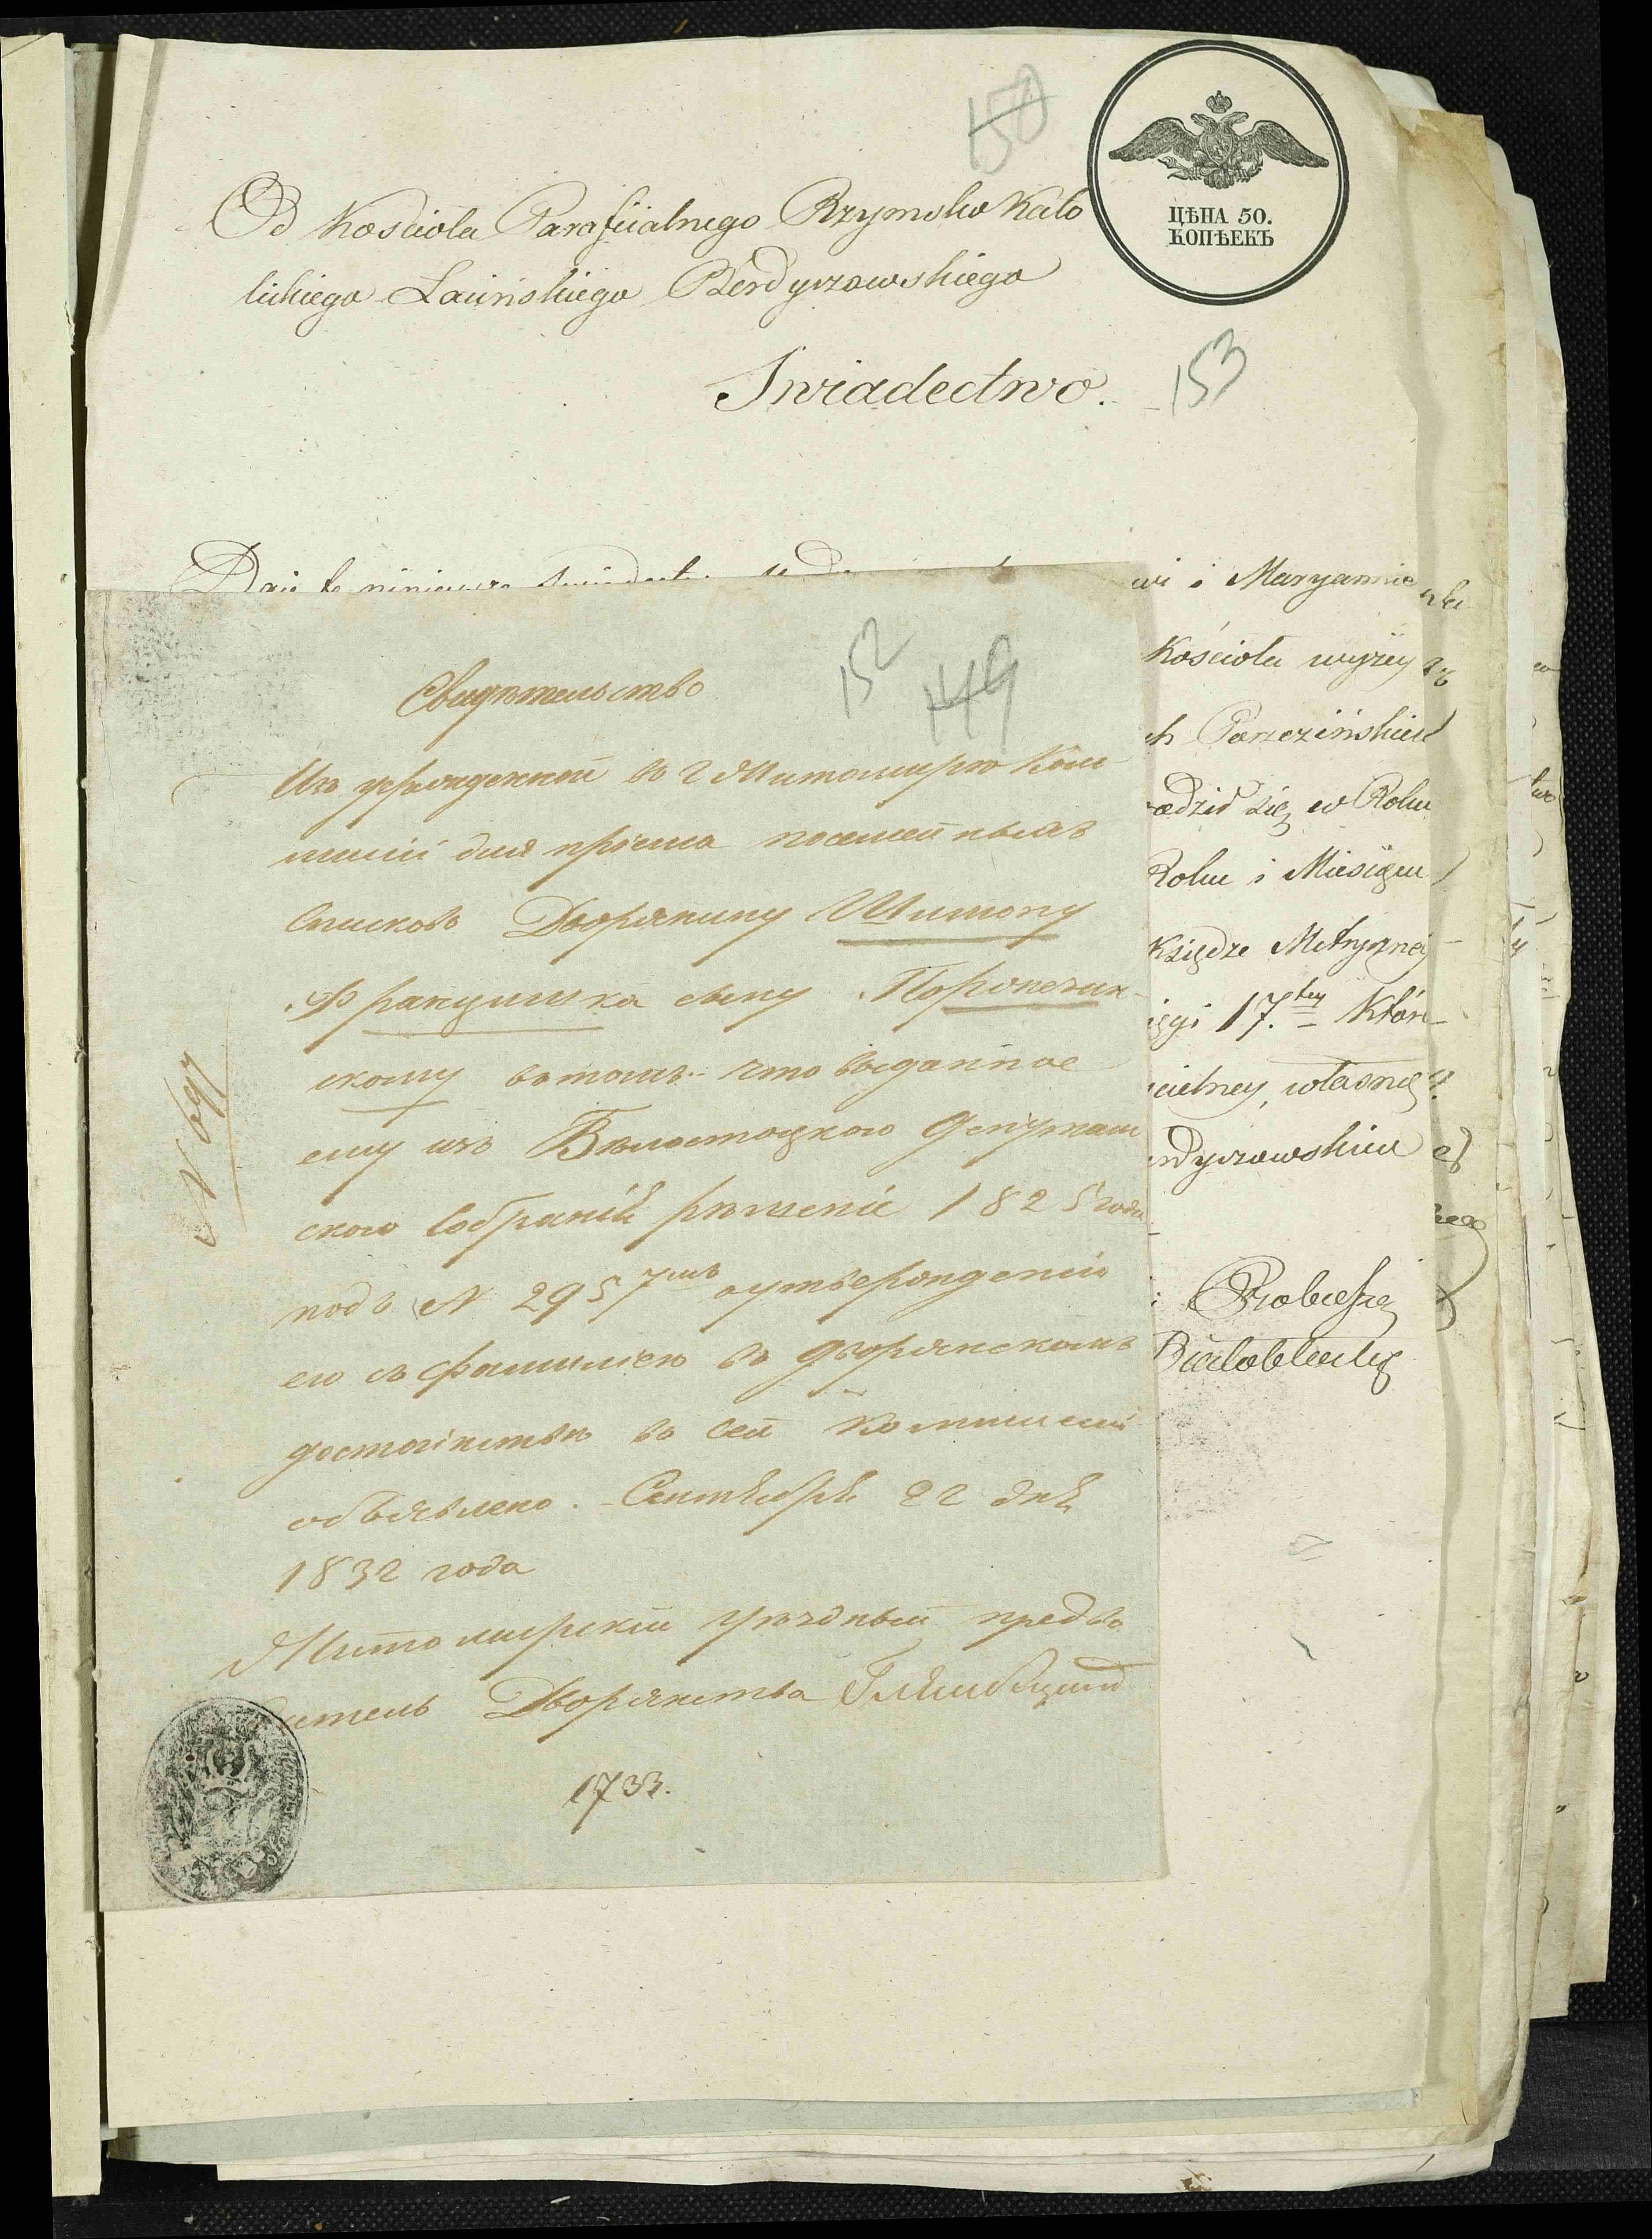 150
ЦѢНА 50.
КОПѢЕКЪ
Od Kosciola Parafiialnego Rzymsko Kato
lickiego Łacinskiego Berdyczowskiego
Swiadectwo.
153
wi i Maryannie
Kościoła wyżey
ch Parczezińskich
rodził się w Roku
Roku i Miesiącu
Księdze Metryczney
ięgi 17.tey Któr
cielney, własną
rdyczowskim
Białobłocki
152
149
Свидѣтельство
Изъ учрежденной въ г Житомирѣ Ком
мисіи для пріема посемейныхъ
списковъ Дворянину Шимону
Францишка сыну
скому въ томъ что выданное
ему изъ Бѣлостоцкого Депутат
ского Собранія рѣшеніе 1825 года
подъ N 2957мъ о утвержденіи
его съ фамиліею въ дворянскомъ
достоинствѣ въ сей коммисіи
объявлено. Сентября 22 дня
1832 года
Житомирскій уѣздный предво
дитель Дворянства
1733.
N 697